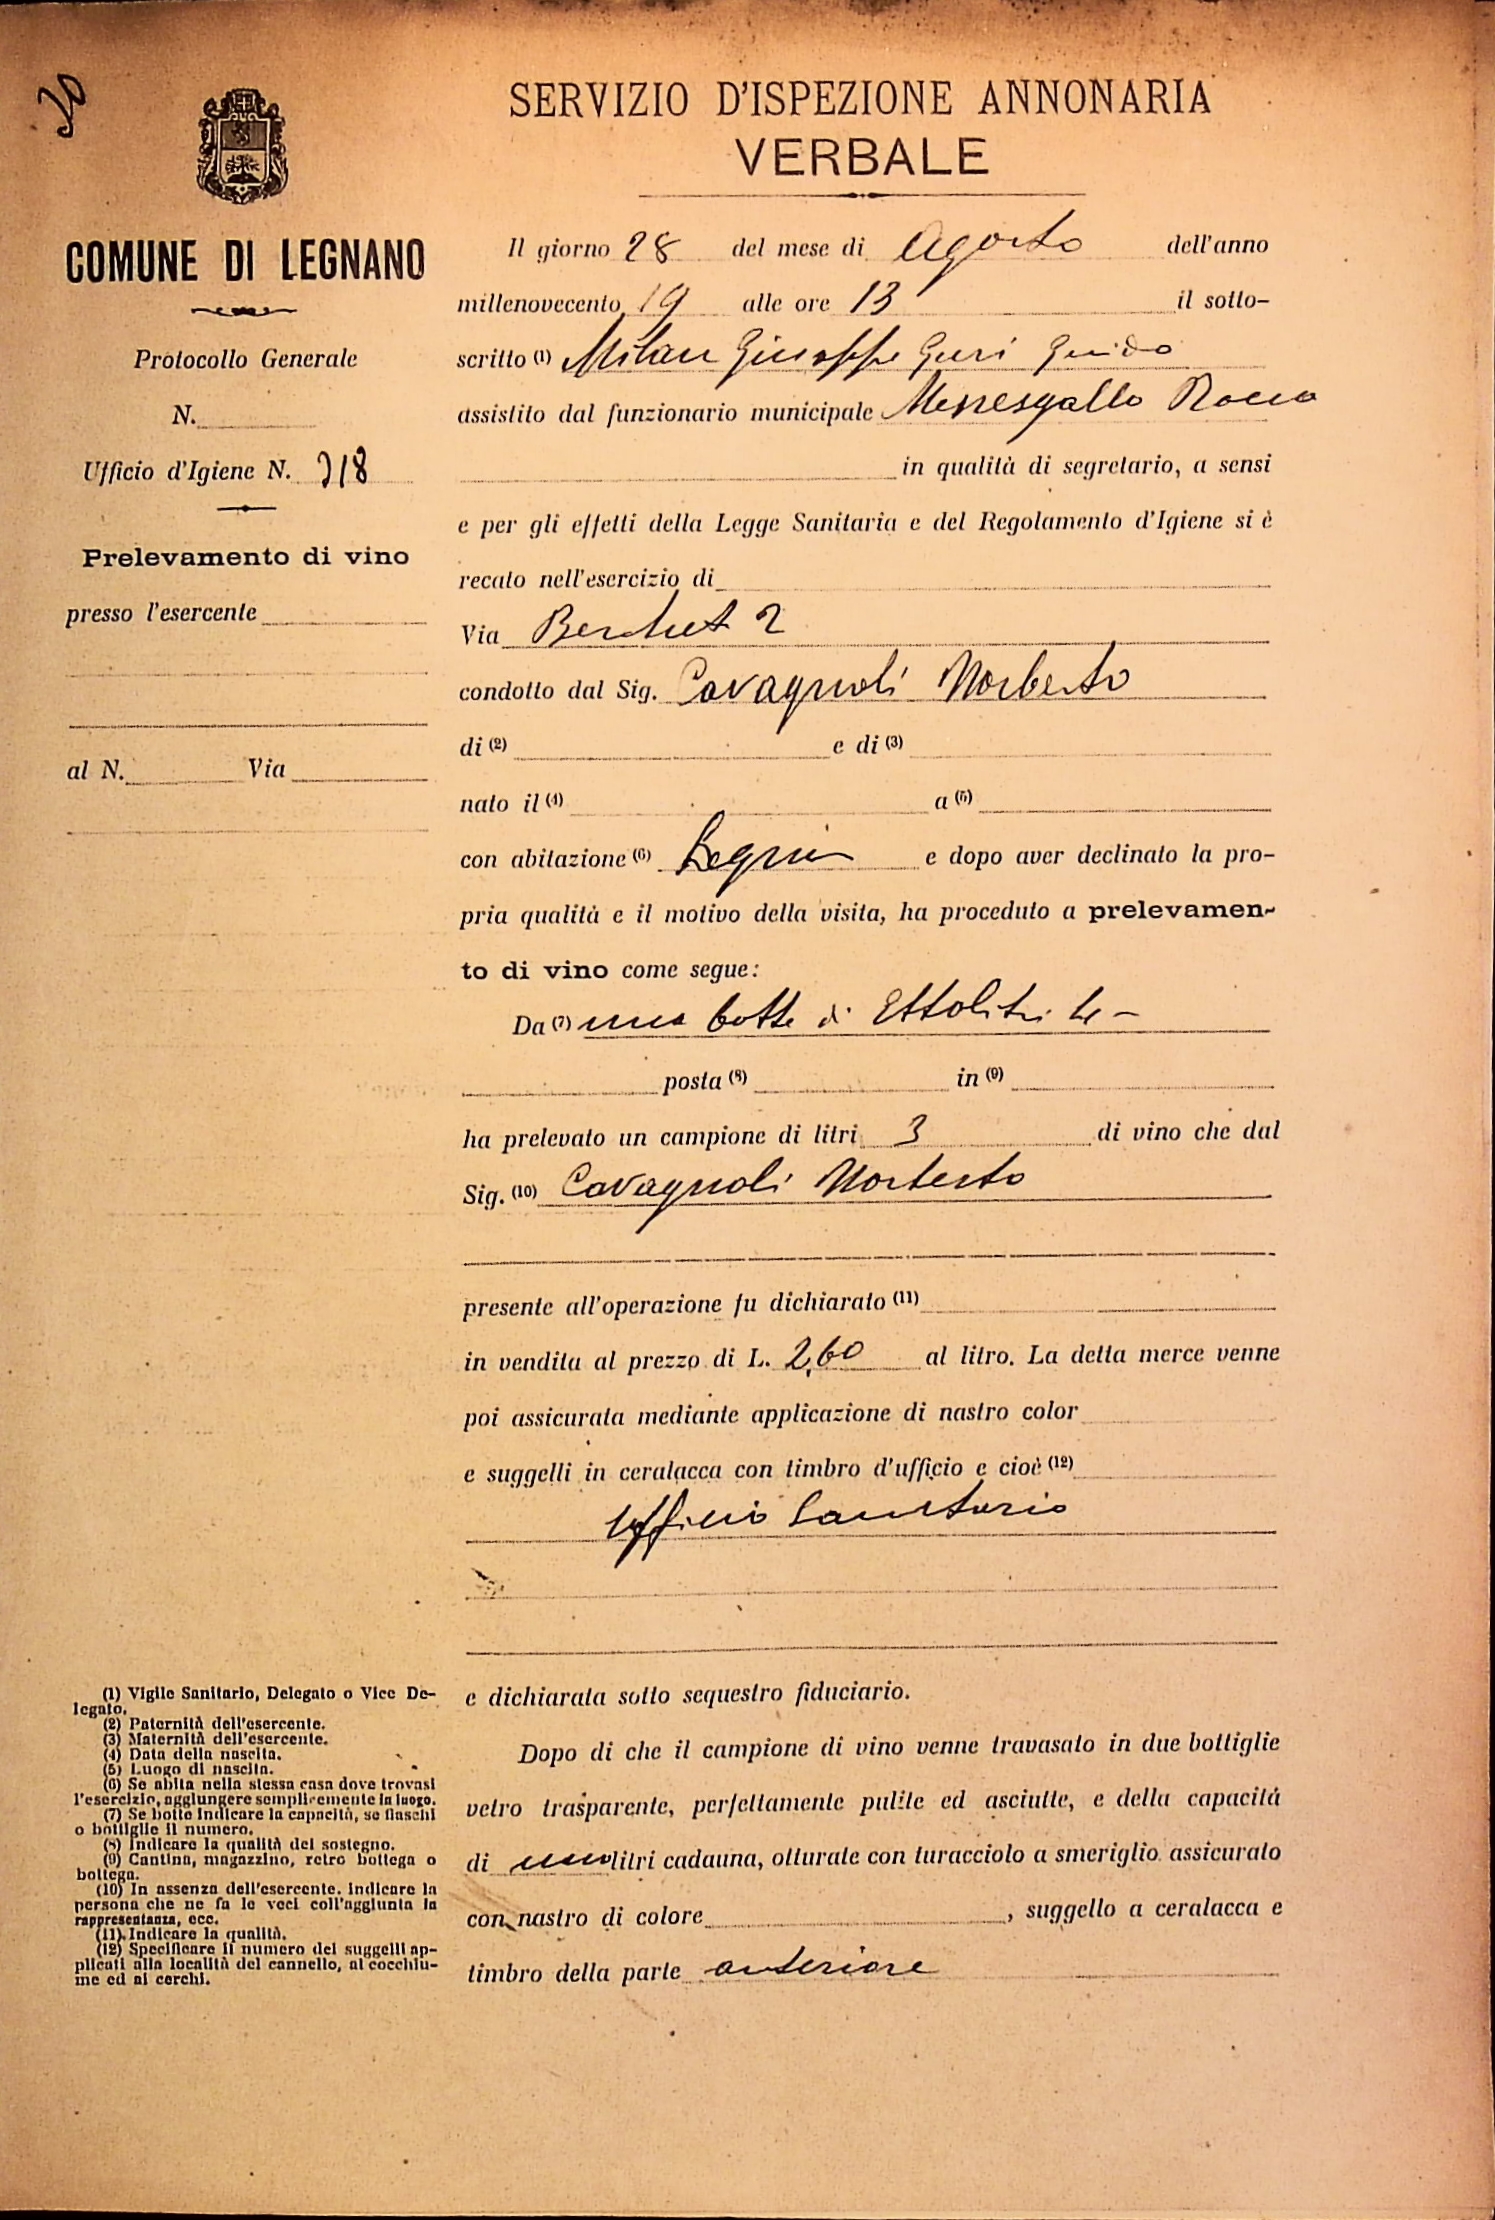 30
SERVIZIO D'ISPEZIONE ANNONARIA
VERBALE
COMUNE DI LEGNANO
Protocollo Generale
N.
Ufficio d'Igiene N. 318
Prelevamento di vino
presso l'esercente
al N. Via
Il giorno 28 del mese di Agosto dell'anno
millenovecento 19 alle ore 13 il sotto-
scritto (1) Milan Giuseppe Guido
assistito dal funzionario municipale Rocco
in qualità di segretario, a sensi
e per gli effetti della Legge Sanitaria e del Regolamento d'Igiene si è
recato nell'esercizio di
Via Berchet 2
condotto dal Sig. Cavagnoli Norberto
di (2) e di (3)
nato il (4) a (5)
con abitazione (6) e dopo aver declinato la pro-
pria qualità e il motivo della visita, ha proceduto a prelevamen-
to di vino come segue:
Da (7) una botte di Ettolitri 4 -
posta (8) in (9)
ha prelevato un campione di litri 3 di vino che dal
Sig. (10) Cavagnoli Norberto
presente all'operazione fu dichiarato (11)
in vendita al prezzo di L. 2,60 al litro. La detta merce venne
poi assicurata mediante applicazione di nastro color
e suggelli in ceralacca con timbro d'ufficio e cioè (12)
Ufficio Sanitario
e dichiarata sotto sequestro fiduciario.
Dopo di che il campione di vino venne travasato in due bottiglie
vetro trasparente, perfettamente pulite ed asciutte, e della capacità
di uno litri cadauna, otturate con turacciolo a smeriglio assicurato
con nastro di colore , suggello a ceralacca e
timbro della parte anteriore
(1) Vigile Sanitario, Delegato o Vice De-
legato.
(2) Paternità dell'esercente.
(3) Maternità dell'esercente.
(4) Data della nascita.
(5) Luogo di nascita.
(6) Se abita nella stessa casa dove trovasi
l'esercizio, aggiungere semplicemente in luogo.
(7) Se botte indicare la capacità, se fiaschi
o bottiglie il numero.
(8) Indicare la qualità del sostegno.
(9) Cantina, magazzino, retro bottega o
bottega.
(10) In assenza dell'esercente, indicare la
persona che ne fa le veci coll'aggiunta in
rappresentanza, ecc.
(11) Indicare la qualità.
(12) Specificare il numero dei suggelli ap-
plicati alla località del cannello, al cocchiu-
me ed ai cerchi.